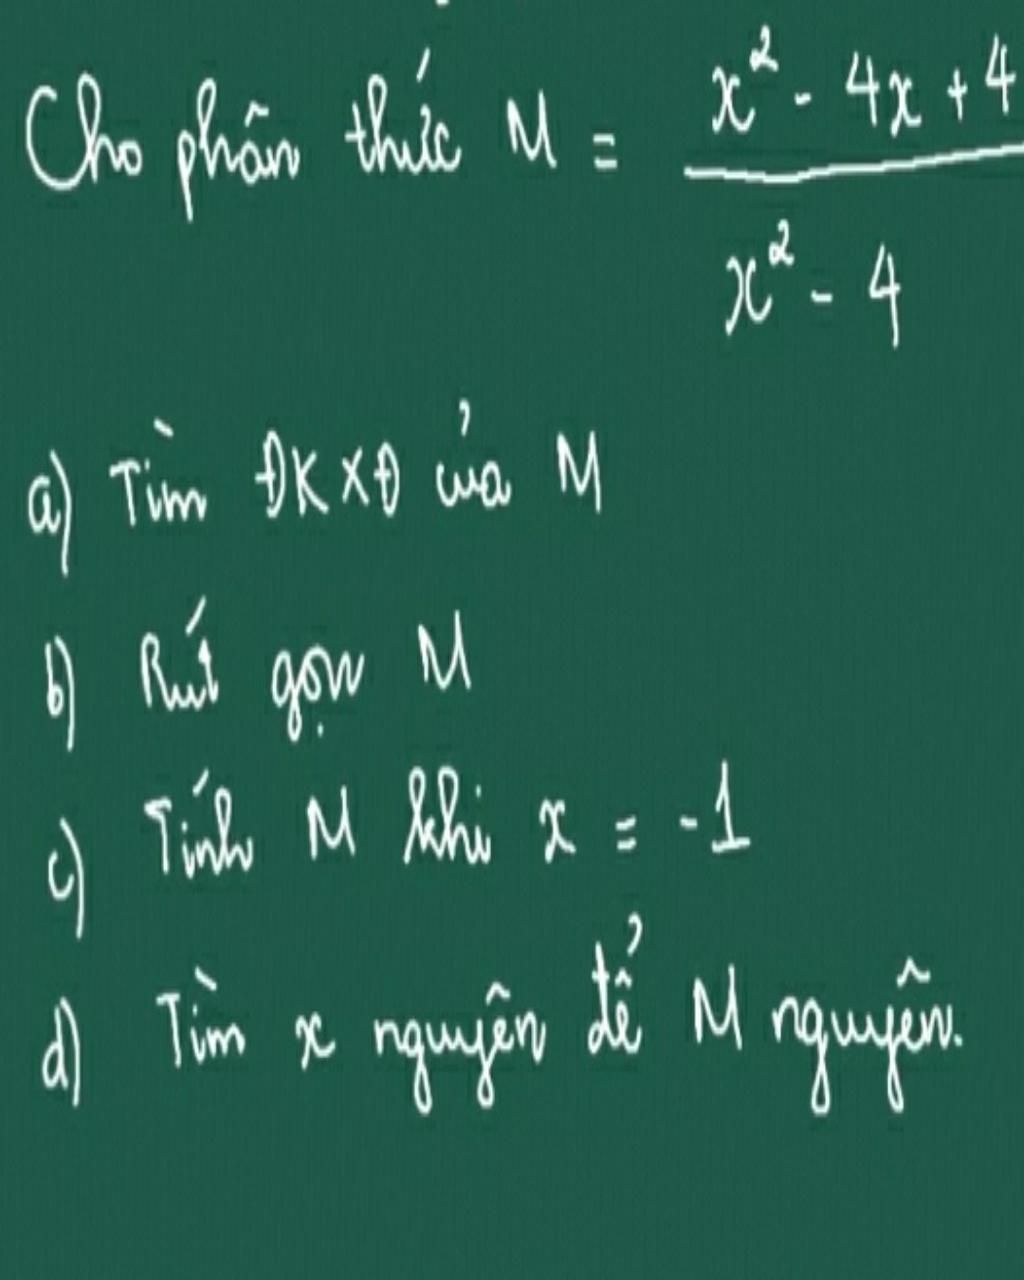 Cho phân thức M = \frac{x² - 4x + 4}{x² - 4}
a) Tìm ĐKXĐ của M
b) Rút gọn M
c) Tính M khi x = -1
d) Tìm x nguyên để M nguyên.